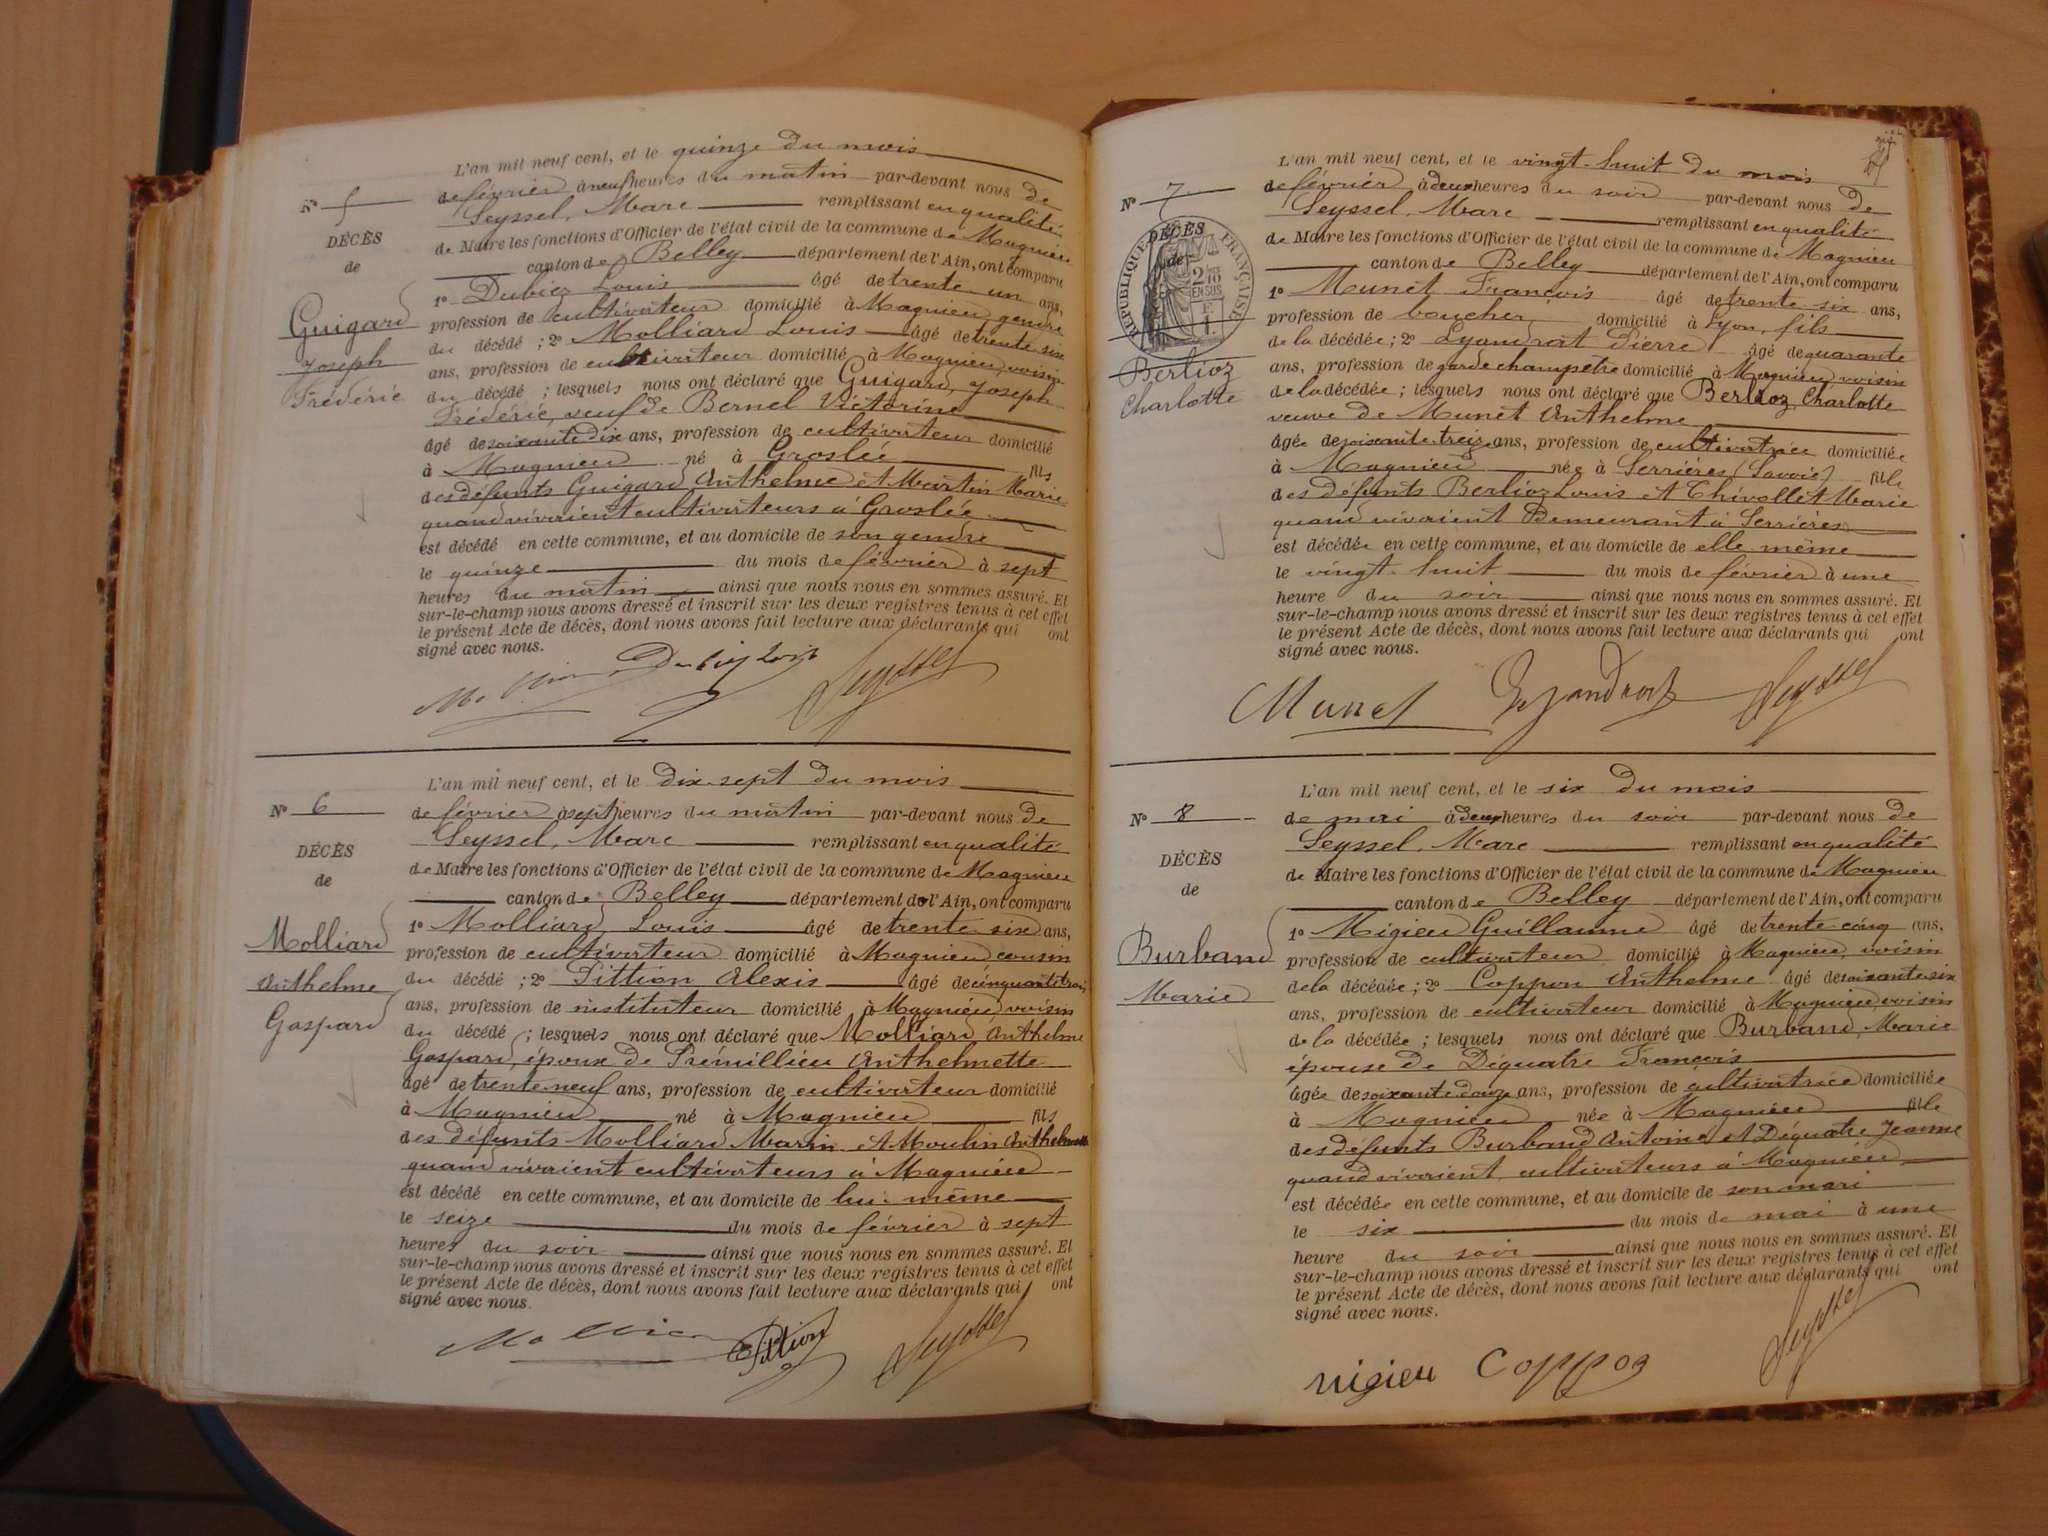 L'an mil neuf cent, et le quinze du mois
de février à neuf heures du matin par-devant nous de
Seyssel, Marc remplissant en qualité
de Maire les fonctions d'Officier de l'état civil de la commune de Magnieu
canton de Belley département de l'Ain, ont comparu
1º Dubiez Louis âgé de trente un ans,
profession de cultivateur domicilié à Magnieu gendre
du décédé ; 2º Molliard Louis âgé de trente six
ans, profession de cultivateur domicilié à Magnieu, voisin
du décédé ; lesquels nous ont déclaré que Guigard, Joseph
Frédéric, veuf de Bernel Victorine
âgé de soixante dix ans, profession de cultivateur domicilié
à Magnieu né à Groslée fils
des défunts Guigard Anthelme et Martin Marie
quand vivaient cultivateurs à Groslée
est décédé en cette commune, et au domicile de son gendre
le quinze du mois de février à sept
heures du matin ainsi que nous nous en sommes assuré. Et
sur-le-champ nous avons dressé et inscrit sur les deux registres tenus à cet effet
le présent Acte de décès, dont nous avons fait lecture aux déclarants qui ont
signé avec nous.
Nº 5
DÉCÈS
de
Guigard
Joseph
Frédéric
Dubiez Louis
Seyssel
L'an mil neuf cent, et le dix-sept du mois
de février à sept heures du matin par-devant nous de
Seyssel, Marc remplissant en qualité
de Maire les fonctions d'Officier de l'état civil de la commune de Magnieu
canton de Belley département de l'Ain, ont comparu
1º Molliard Louis âgé de trente six ans,
profession de cultivateur domicilié à Magnieu cousin
du décédé ; 2º Pittion Alexis âgé de cinquante trois
ans, profession de instituteur domicilié à Magnieu, voisin
du décédé ; lesquels nous ont déclaré que Molliard Anthelme
Gaspard, époux de Prémillieu Anthelmette
âgé de trente neuf ans, profession de cultivateur domicilié
à Magnieu né à Magnieu fils
des défunts Molliard Marin et Moulin Anthelmette
quand vivaient cultivateurs à Magnieu
est décédé en cette commune, et au domicile de lui-même
le seize du mois de février à sept
heures du soir ainsi que nous nous en sommes assuré. Et
sur-le-champ nous avons dressé et inscrit sur les deux registres tenus à cet effet
le présent Acte de décès, dont nous avons fait lecture aux déclarants qui ont
signé avec nous.
Nº 6
DÉCÈS
de
Molliard
Anthelme
Gaspard
Pittion Seyssel
L'an mil neuf cent, et le vingt-huit du mois
de février à deux heures du soir par-devant nous de
Seyssel, Marc remplissant en qualité
de Maire les fonctions d'Officier de l'état civil de la commune de Magnieu
canton de Belley département de l'Ain, ont comparu
1º Munet François âgé de trente-six ans,
profession de boucher domicilié à Lyon, fils
de la décédée ; 2º Lyandrat Pierre âgé de quarante
ans, profession de garde champêtre domicilié à Magnieu voisin
de la décédée ; lesquels nous ont déclaré que Berlioz, Charlotte
veuve de Munet Anthelme
âgée de soixante-treize ans, profession de cultivatrice domiciliée
à Magnieu née à Serrières (Savoie) fille
des défunts Berlioz Louis et Thivollet Marie
quand vivaient demeurant à Serrières
est décédée en cette commune, et au domicile de elle même
le vingt-huit du mois de février à une
heure du soir ainsi que nous nous en sommes assuré. Et
sur-le-champ nous avons dressé et inscrit sur les deux registres tenus à cet effet
le présent Acte de décès, dont nous avons fait lecture aux déclarants qui ont
signé avec nous.
Nº 7
DÉCÈS
de
RÉPUBLIQUE FRANÇAISE
2/10
EN SUS
F
1.
Berlioz
Charlotte
Munet Lyandrat Seyssel
L'an mil neuf cent, et le six du mois
de mai à deux heures du soir par-devant nous de
Seyssel, Marc remplissant en qualité
de Maire les fonctions d'Officier de l'état civil de la commune de Magnieu
canton de Belley département de l'Ain, ont comparu
1º Migieu Guillaume âgé de trente-cinq ans,
profession de cultivateur domicilié à Magnieu, voisin
de la décédée ; 2º Coppon Anthelme âgé de soixante-six
ans, profession de cultivateur domicilié à Magnieu, voisin
de la décédée ; lesquels nous ont déclaré que Burband, Marie
épouse de Déquatre François
âgée de soixante-douze ans, profession de cultivatrice domiciliée
à Magnieu née à Magnieu fille
des défunts Burband Antoine et Déquatre Jeanne
quand vivaient cultivateurs à Magnieu
est décédée en cette commune, et au domicile de son mari
le six du mois de mai à une
heure du soir ainsi que nous nous en sommes assuré. Et
sur-le-champ nous avons dressé et inscrit sur les deux registres tenus à cet effet
le présent Acte de décès, dont nous avons fait lecture aux déclarants qui ont
signé avec nous.
Nº 8
DÉCÈS
de
Burband
Marie
Migieu Coppon Seyssel